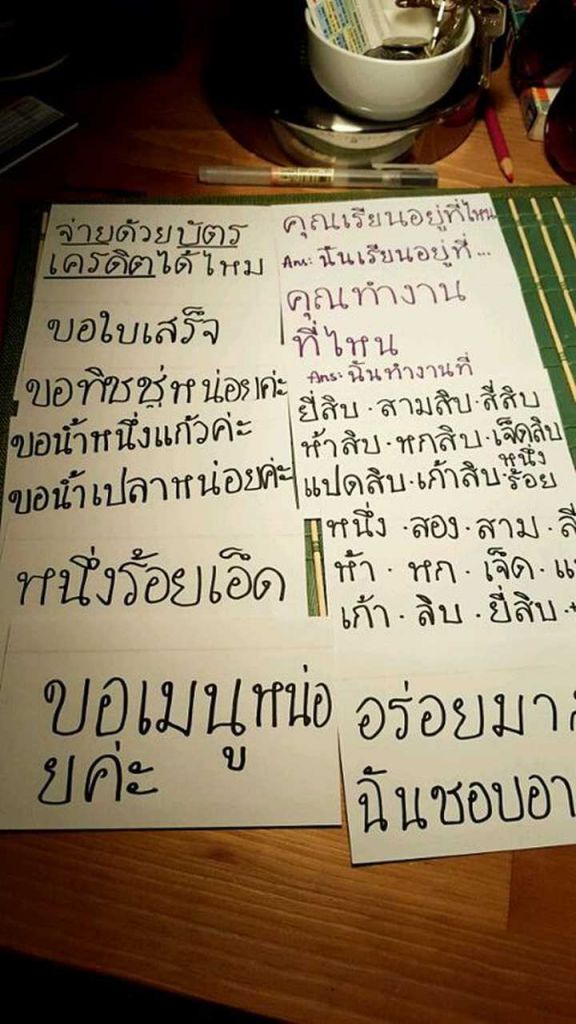 จ่ายด้วยบัตร
เครดิตได้ไหม
ขอใบเสร็จ
ขอทิชชู่หน่อยค่ะ
ขอน้ำหนึ่งแก้วค่ะ
ขอน้ำเปลาหน่อยค่ะ
หนึ่งร้อยเอ็ด
ขอเมนูหน่อ
ยค่ะ
คุณเรียนอยู่ที่ไหน
Ans: ฉันเรียนอยู่ที่...
คุณทำงาน
ที่ไหน
Ans: ฉันทำงานที่
ยี่สิบ · สามสิบ · สี่สิบ
ห้าสิบ · หกสิบ · เจ็ดสิบ
แปดสิบ · เก้าสิบ · หนึ่งร้อย
หนึ่ง · สอง · สาม ·
ห้า · หก · เจ็ด ·
เก้า · สิบ · ยี่สิบ ·
อร่อยมา
ฉันชอบอา